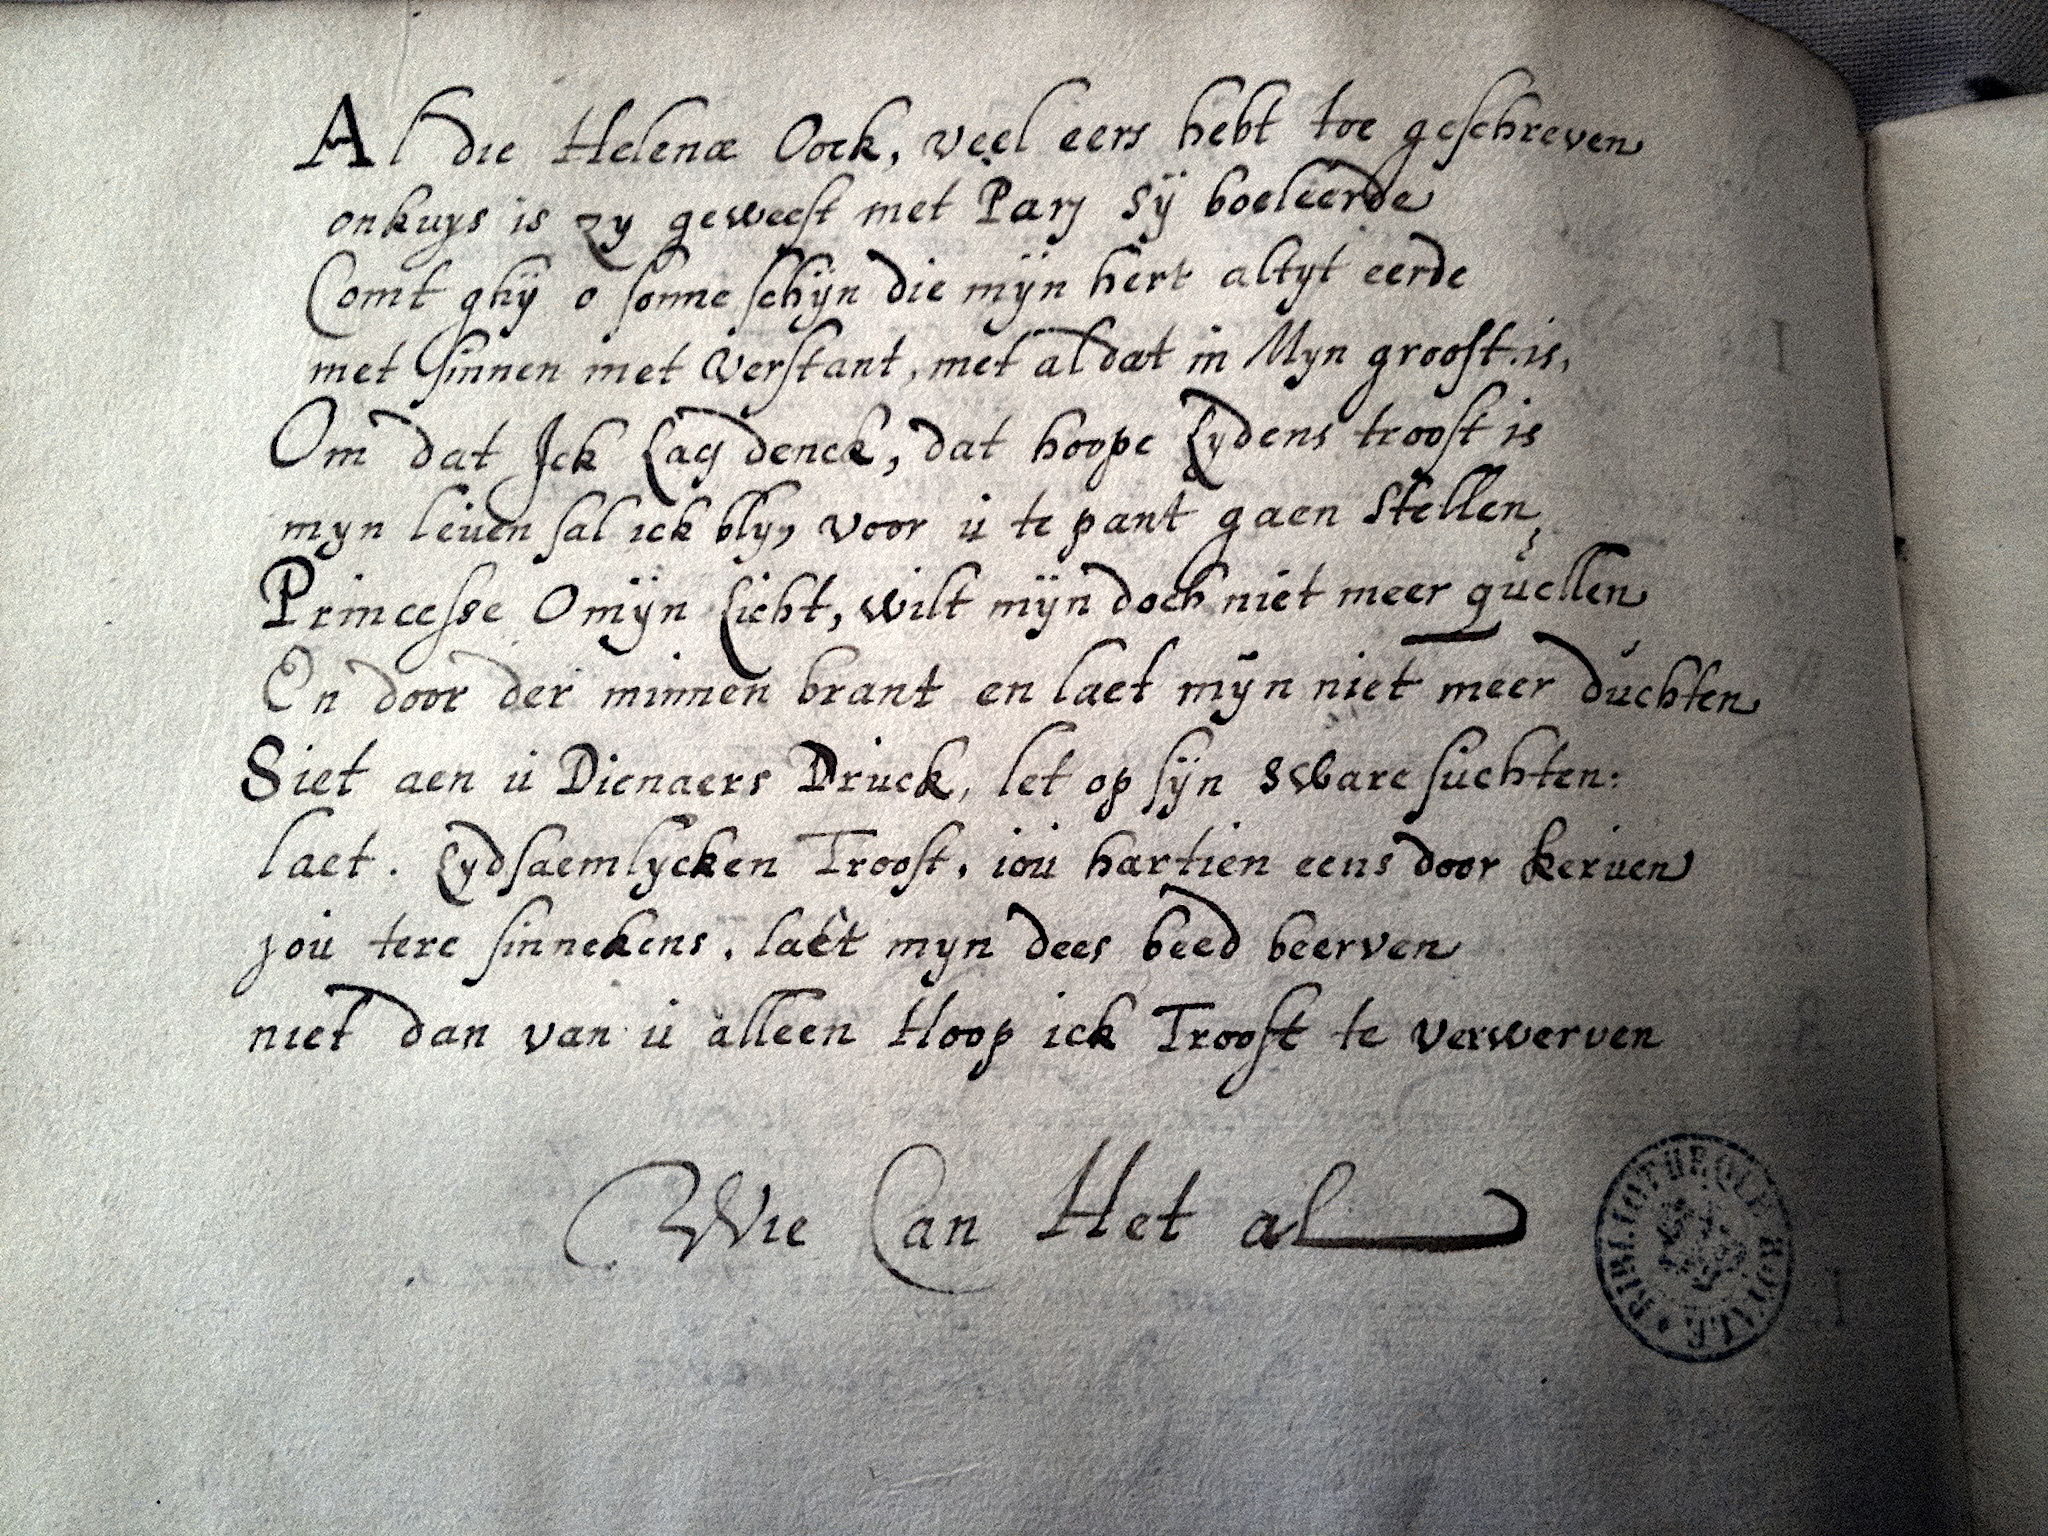 Al die Helenæ Oock, veel eers hebt toe geschreven
onkuys is zy geweest met Parÿ sÿ boeleerde
Comt ghÿ o sonne schÿn die mÿn hert altyt eerde
met sinnen met Verstant, met al dat in Myn groost is,
Om dat Ick Lag denck, dat hoope Lydens troost is
myn leuen sal ick bly, voor u te pant gaen Stellen,
Princesse O mÿn Licht, wilt mÿn doch niet meer quellen
En door der minnen brant en laet mÿn niet meer duchten
Siet aen u Dienaers Druck, let op sÿn Sware suchten:
laet. Lydsaemlycken Troost, iou hartien eens door kerven
jou tere sinnekens, laet myn dees beed beerven
niet dan van u alleen Hoop ick Troost te verwerven
Wie Can Het al
BIBLIOTHEQUE ROYALE